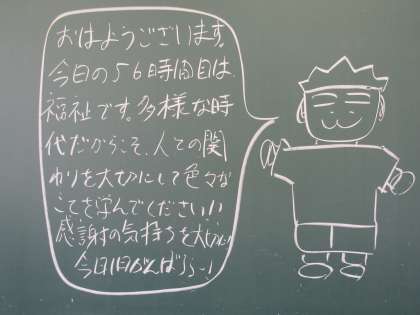 おはようございます。
今日の56時間目は
福祉です。多様な時
代だからこそ、人との関
わりを大切にして色々な
ことを学んでください!!
感謝の気持ちを大切に
今日1日がんばろう!